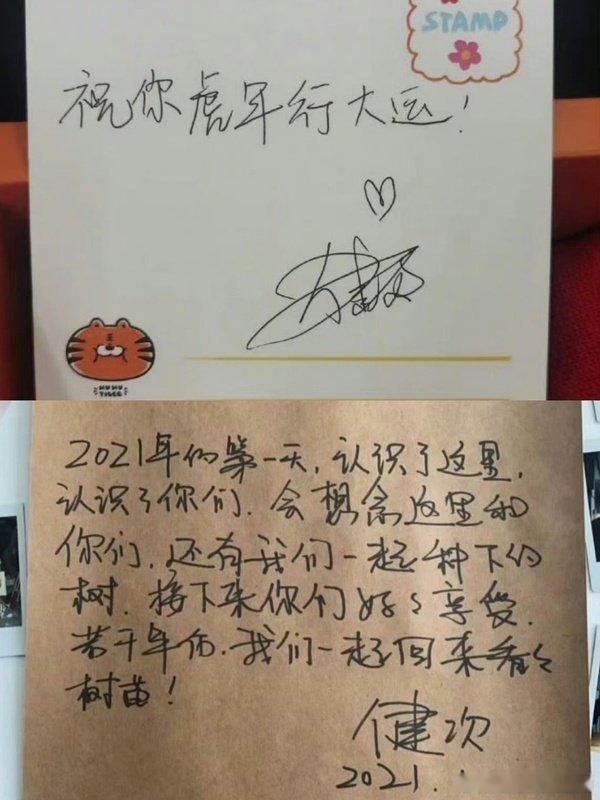 STAMP
祝你虎年行大运!
HUHU
TIGER
2021年的第一天,认识了这里,
认识了你们.会想念这里和
你们,还有我们一起种下的
树.接下来你们好好享受.
若干年后.我们一起回来看看
树苗!
健次
2021.